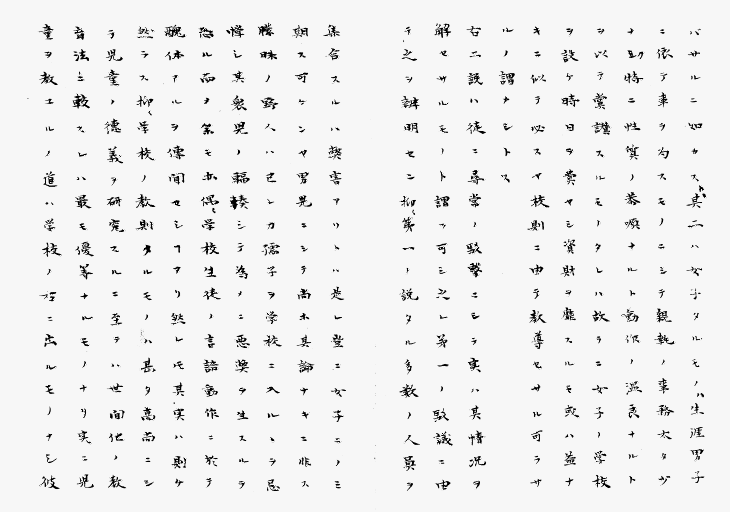 バサルニ如カスト其二ハ女子タルモノハ生涯男子
ニ依テ事ヲ為スモノニシテ親執ノ事務太タ少
ナク特ニ性質ノ恭順ナルト動作ノ温良ナルト
ヲ以テ賞讃スルモノタレハ故ラニ女子ノ学校
ヲ設ケ時日ヲ費ヤシ資財ヲ靡スルモ或ハ益ナ
キニ似テ必スヤ校則ニ由テ教導セサル可ラサ
ルノ謂ナシトス
右二説ハ徒ニ尋常ノ駁撃ニシテ実ハ其情況ヲ
解セサルモノト謂フ可シ之レ第一ノ駁議ニ由
テ之ヲ辨明セン抑第一ノ説タル多数ノ人員ヲ
集合スルハ弊害アリトハ是レ豈ニ女子ニノミ
期ス可ケンヤ男児ニシテ尚ホ其論ナキニ非ス
曖昧ノ野人ハ己レカ孺子ヲ学校ニ入ルヽヲ忌
憚シ其衆児ノ輻輳シテ為ノニ悪奨ヲ生スルヲ
恐ル而メ第モ亦偶学校生徒ノ言語動作ニ於テ
醜体アルヲ傳聞セシフアリ然レモ其実ハ則ケ
然ラス抑学校ノ教則タルモノハ甚タ高尚ニシ
テ児童ノ徳義ヲ研究スルニ至テハ世間他ノ教
育法ニ較スレハ最モ優等ナルモノナリ実ニ児
童ヲ教エルノ道ハ学校ノ右ニ出ルモノナシ彼